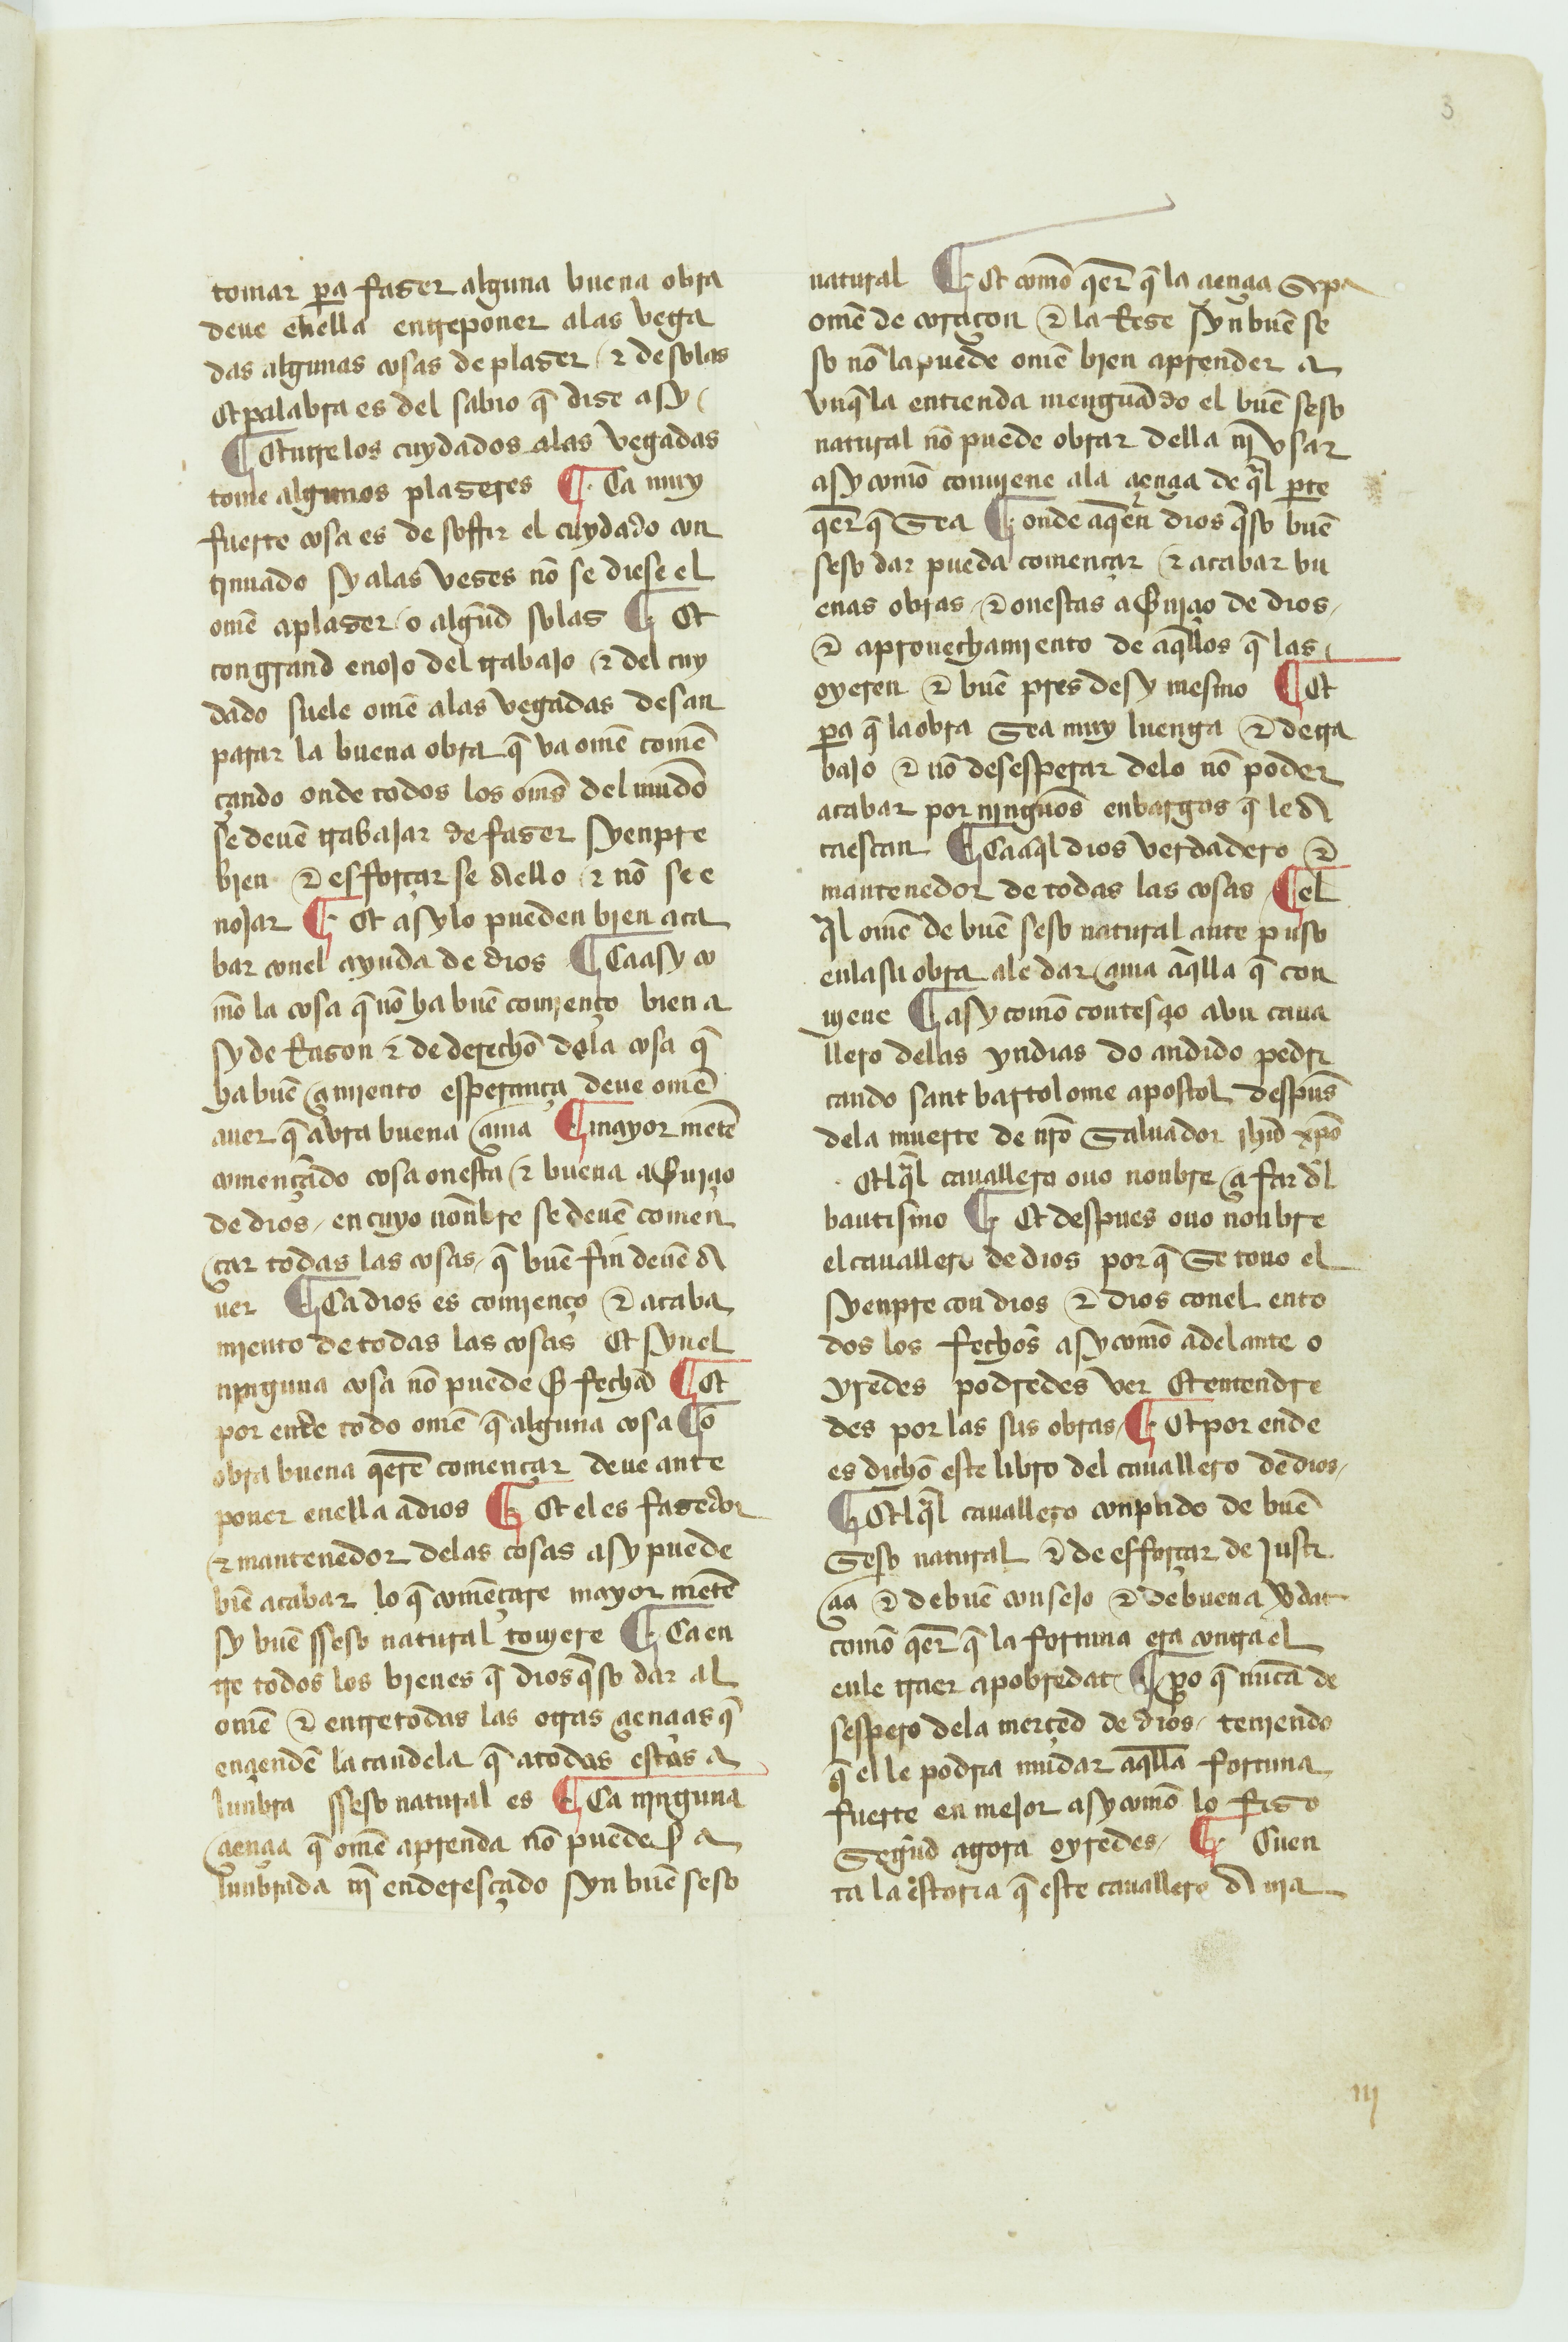 3
tomar pa fazer alguna buena obra
deue enella entreponer alas vega
das algunas cosas de plazer ⁊ de solas
Et palabra es del sabio q̃ dize asy
¶ Entre los cuydados alas vegadas
tome algunos plazeres ¶ Ca muy
fuerte cosa es de soffrir el cuydado con
tinuado sy alas vezes nõ se diese el
omẽ a plazer o algũd solas ¶ Et
con grand enojo del trabajo ⁊ del cuy
dado suele omẽ alas vegadas desan
parar la buena obra q̃ va omẽ comẽ
çando onde todos los om̃s del mũdo
se deuẽ trabajar de fazer syenpre
bien ⁊ esforçar se a ello ⁊ nõ se e
nojar ¶ Et asy lo pueden bien aca
bar conel ayuda de dios ¶ Ca asy co
mõ la cosa q̃ nõ ha buẽ comienço bien a
sy de Razon ⁊ de derechõ dela cosa q̃
ha buẽ çimiento esperança deue omẽ
auer q̃ abra buena çima ¶ mayor mẽte
comẽçãdo cosa onesta ⁊ buena a ẞuiçio
de dios en cuyo nõnbre se deuẽ comen
çar todas las cosas q̃ buẽ fin deuẽ a
uer ¶ Ca dios es comienço ⁊ acaba
miento de todas las cosas Et syn el
ninguna cosa nõ puede ẞ fecha ¶ Et
por ende todo omẽ q̃ alguna cosa ¶ o
obra buena q̃rẽ començar deue ante
poner enella a dios ¶ Et el es fazedor
⁊ mantenedor delas cosas asy puede
biẽ acabar lo q̃ comẽçare mayor mẽte
sy buẽ sseso natural touiere ¶ Ca en
tre todos los bienes q̃ dios q̃so dar al
omẽ ⁊ entre todas las otras çiençias q̃
ençiendẽ la candela q̃ a todas estas a
lunbra sseso natural es ¶ Ca ninguna
çiençia q̃ omẽ aprenda nõ puede ẞ a
lunbrada nĩ enderesçado syn buẽ seso
natural ¶ Et comõ q̃er q̃ la çiençia sepa
omẽ de coraçon ⁊ la Reze syn buẽ se
so nõ la puede omẽ bien aprender a
vnq̃ la entienda menguãdo el buẽ seso
natural nõ puede obrar della nĩ vsar
asy comõ conuiene ala çiençia de q̃l pte
q̃er q̃ sea ¶ onde a q̃en dios q̃so buẽ
seso dar pueda començar ⁊ acabar bu
enas obras ⁊ onestas a ẞuiçio de dios
⁊ aprouechamiento de aq̃llos q̃ las
oyeren ⁊ buẽ pres de sy mesmo ¶ Et
pa q̃ la obra sea muy luenga ⁊ de tra
bajo ⁊ nõ desesperar delo nõ poder
acabar por ningũos enbargos q̃ le a
caescan ¶ Ca aq̃l dios verdadero ⁊
mantenedor de todas las cosas ¶ el
q̃l omẽ de buẽ seso natural ante puso
enla su obra a le dar çima aq̃lla q̃ con
uiene ¶ asy comõ contesçio a vn caua
llero delas yndias do andido pedri
cando sant bartolome apostol despũs
dela muerte de nr̃o saluador ihũ xp̃o
El q̃l cauallero ouo nonbre çifar d̃l
bautismo ¶ Et despues ouo nonbre
el cauallero de dios por q̃ se touo el
syenpre con dios ⁊ dios conel en to
dos los fechõs asy comõ adelante o
yredes podredes ver Et entendre
des por las sus obras ¶ Et por ende
es dichõ este libro del cauallero de dios
¶ El q̃l cauallero conplido de buẽ
seso natural ⁊ de efforçar de justi
çia ⁊ de buẽ consejo ⁊ de buena ỹdat
comõ q̃er q̃ la fortuna era contra el
enle traer a pobredat ¶ ꝑo q̃ nũca de
sespero dela merçed de dios teniendo
q̃ el le podria mũdar aq̃lla fortuna
fuerte en mejor asy comõ lo fizo
Segũd agora oyredes ¶ Cuen
ta la estoria q̃ este cauallero a uia
iij